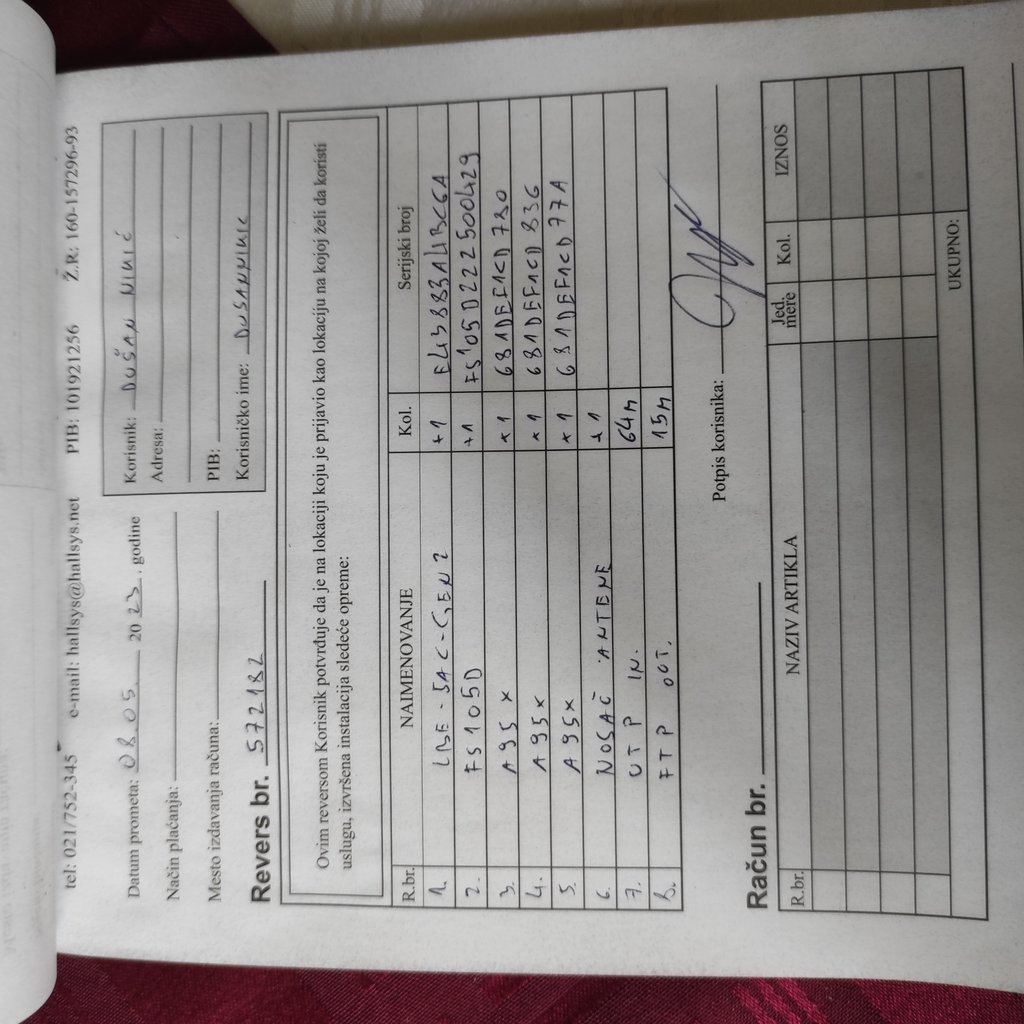 tel: 021/752-345 e-mail: hallsys@hallsys.net PIB: 101921256 Ž.R: 160-157296-93
Datum prometa: 08.05 2023. godine
Način plaćanja:
Mesto izdavanja računa:
Korisnik: DUŠAN NIKIĆ
Adresa:
PIB:
Korisničko ime: DUSANNIKIC
Revers br. 572182
Ovim reversom Korisnik potvrđuje da je na lokaciji koju je prijavio kao lokaciju na kojoj želi da koristi
uslugu, izvršena instalacija sledeće opreme:
R.br. NAIMENOVANJE Kol. Serijski broj
1. LBE-5AC-GEN2 +1
2. FS105D +1 FS105D222500429
3. A95X +1 681DEF1CD780
4. A95X +1 681DEF1CD836
5. A95X +1 681DEF1CD77A
6. NOSAČ ANTENE +1
7. UTP IN. 64m
8. FTP OUT. 15m
Potpis korisnika:
Račun br.
R.br. NAZIV ARTIKLA Jed. mere Kol. IZNOS
UKUPNO: